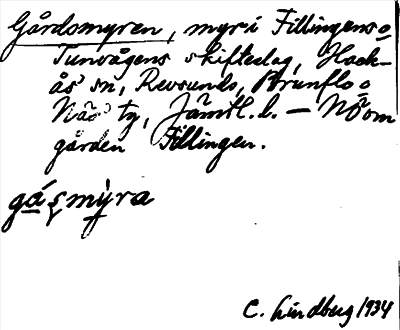 Gårdsmyren, myr i Fillingens o
Tunvågens skifteslag, Hack-
ås sn, Revsunds, Brunflo o
Näs tg, Jämtl. l. — NÖ om
gården Fillingen.
gáṣmỳra
C. Lindberg 1934